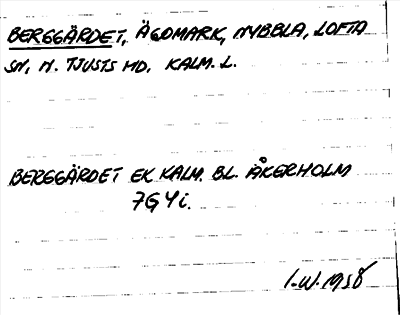 BERGGÄRDET, ÄGOMARK, NYBBLA, LOFTA
SN, N. TJUSTS HD, KALM. L.
BERGGÄRDET EK KALM. BL. ÅKERHOLM
7G4i.
I.W. 1958